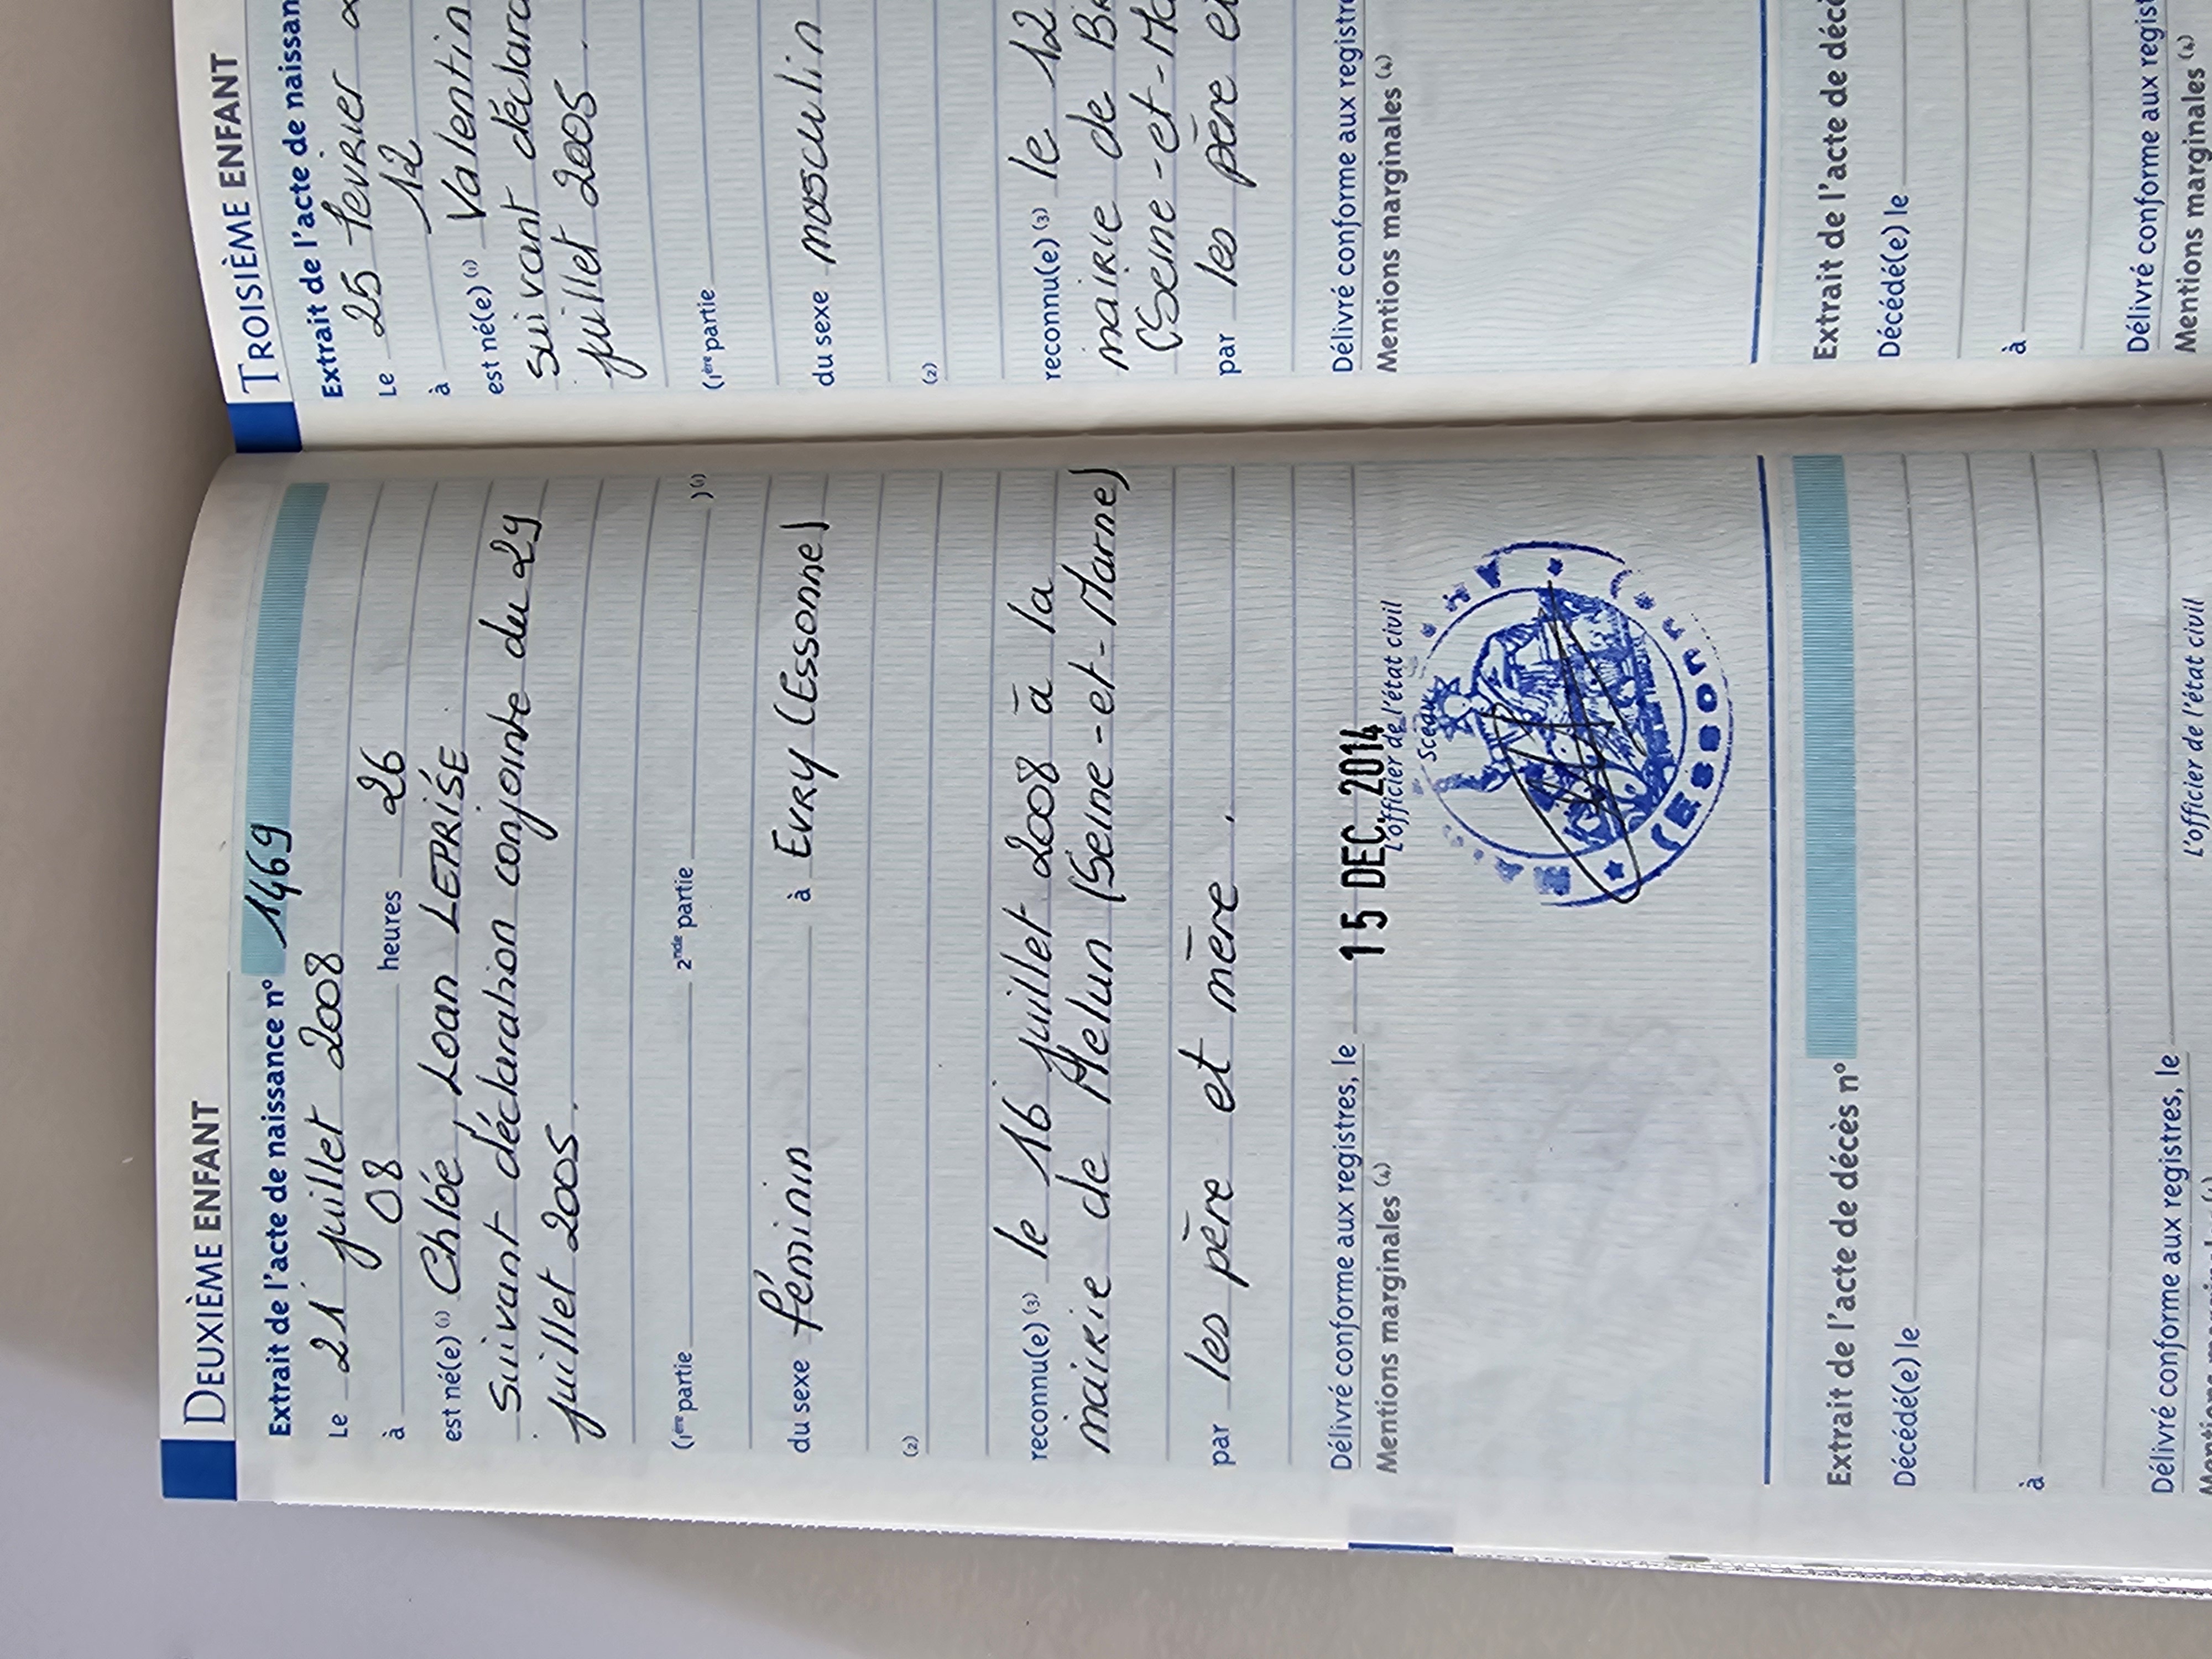 DEUXIÈME ENFANT
Extrait de l'acte de naissance n° 1469
Le 21 juillet 2008
à 08 heures 26
est né(e) (1) Chloé, Loan LEPRISÉ
suivant déclaration conjointe du 29
juillet 2005.
(1ère partie 2nde partie )(1)
du sexe féminin à EVRY (Essonne)
(2)
reconnu(e) (3) le 16 juillet 2008 à la
mairie de Melun (Seine-et-Marne)
par les père et mère.
Délivré conforme aux registres, le 15 DEC. 2014
Mentions marginales (4) L'officier de l'état civil
Sceau
Extrait de l'acte de décès n°
Décédé(e) le
à
Délivré conforme aux registres, le
Mentions L'officier de l'état civil
TROISIÈME ENFANT
Extrait de l'acte de naissan
Le 25 février
à 12
est né(e) (1) Valentin
suivant déclara
juillet 2005.
(1ère partie
du sexe masculin
(2)
reconnu(e) (3) le 12
mairie de
(Seine-et-Ma
par les père et
Délivré conforme aux registre
Mentions marginales (4)
Extrait de l'acte de décè
Décédé(e) le
à
Délivré conforme aux regist
Mentions marginales (4)